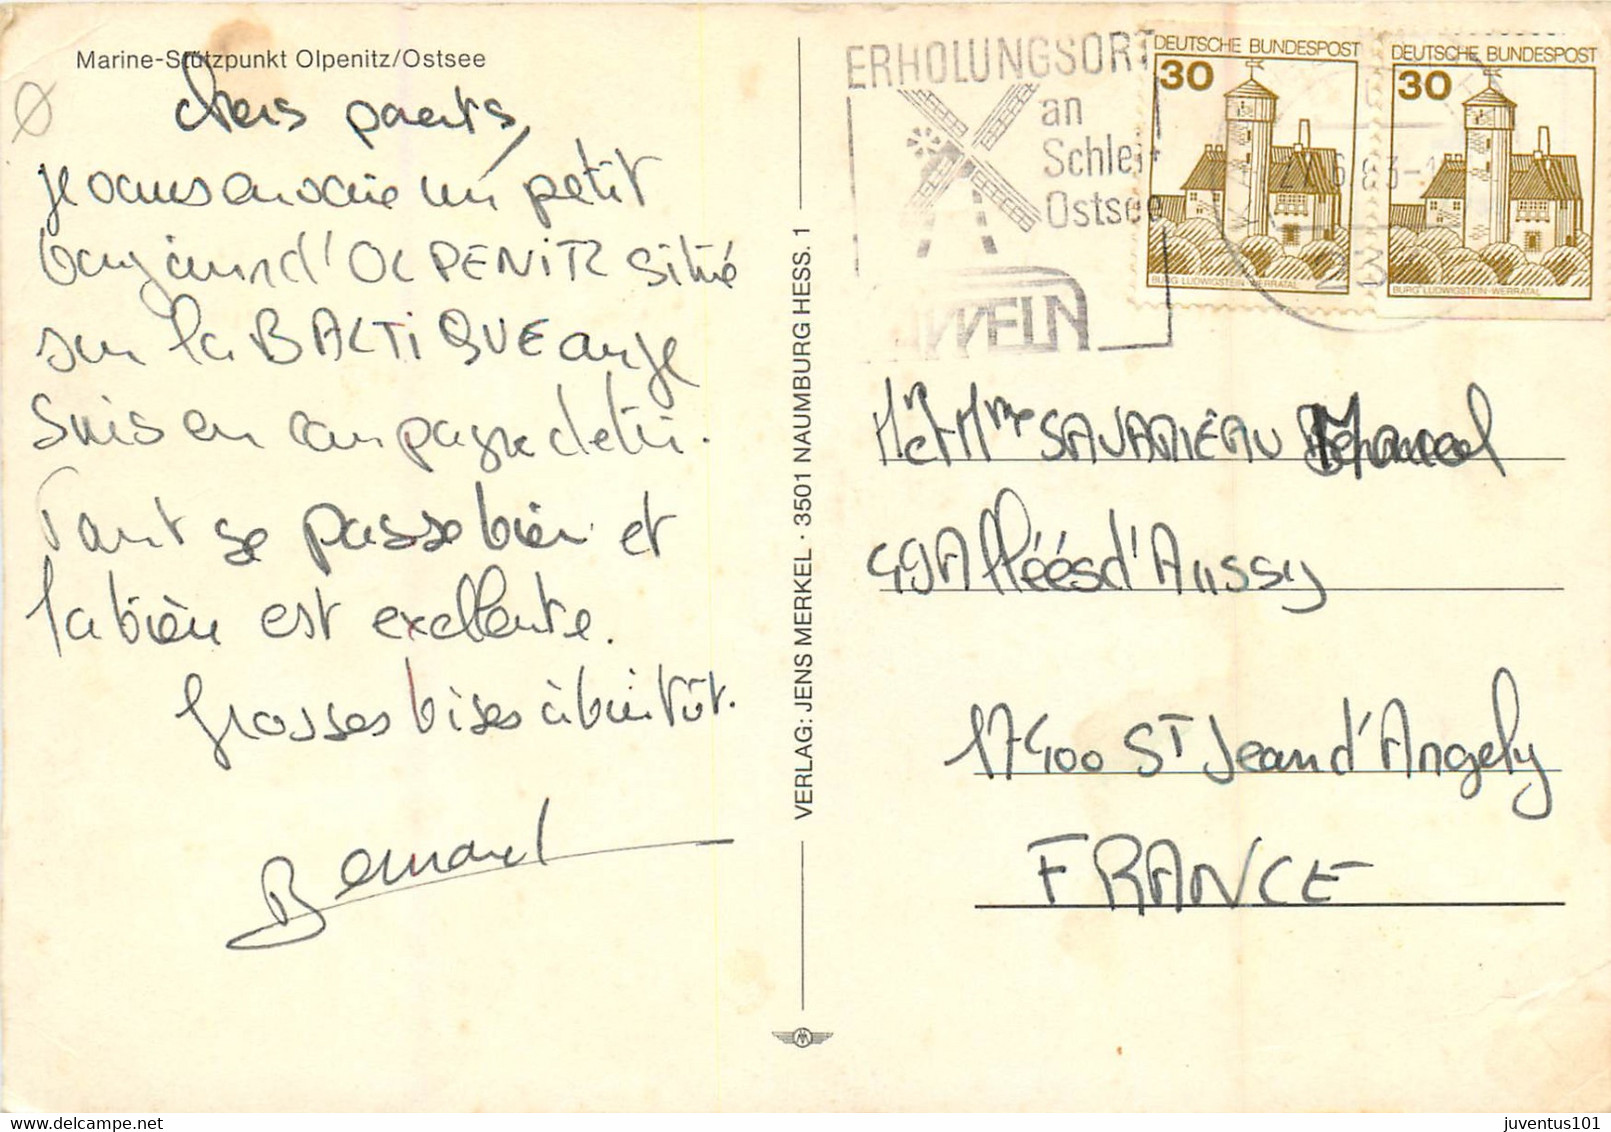 Marine-Stützpunkt Olpenitz/Ostsee
Chers parents,
je vous envoie un petit
bonjour d'OLPENITZ situé
sur la BALTIQUE où je
suis en campagne de tir.
Tout se passe bien et
la bière est excellente.
Grosses bises à bientôt.
Bernard
VERLAG: JENS MERKEL · 3501 NAUMBURG HESS. 1
ERHOLUNGSORT
an
Schlei +
Ostsee
DEUTSCHE BUNDESPOST
30
BURG LUDWIGSTEIN-WERRATAL
DEUTSCHE BUNDESPOST
30
BURG LUDWIGSTEIN-WERRATAL
Mr et Mme SAVARIEAU Marcel
49 Alléés d'Aussy
17400 ST Jean d'Angely
FRANCE
juventus101